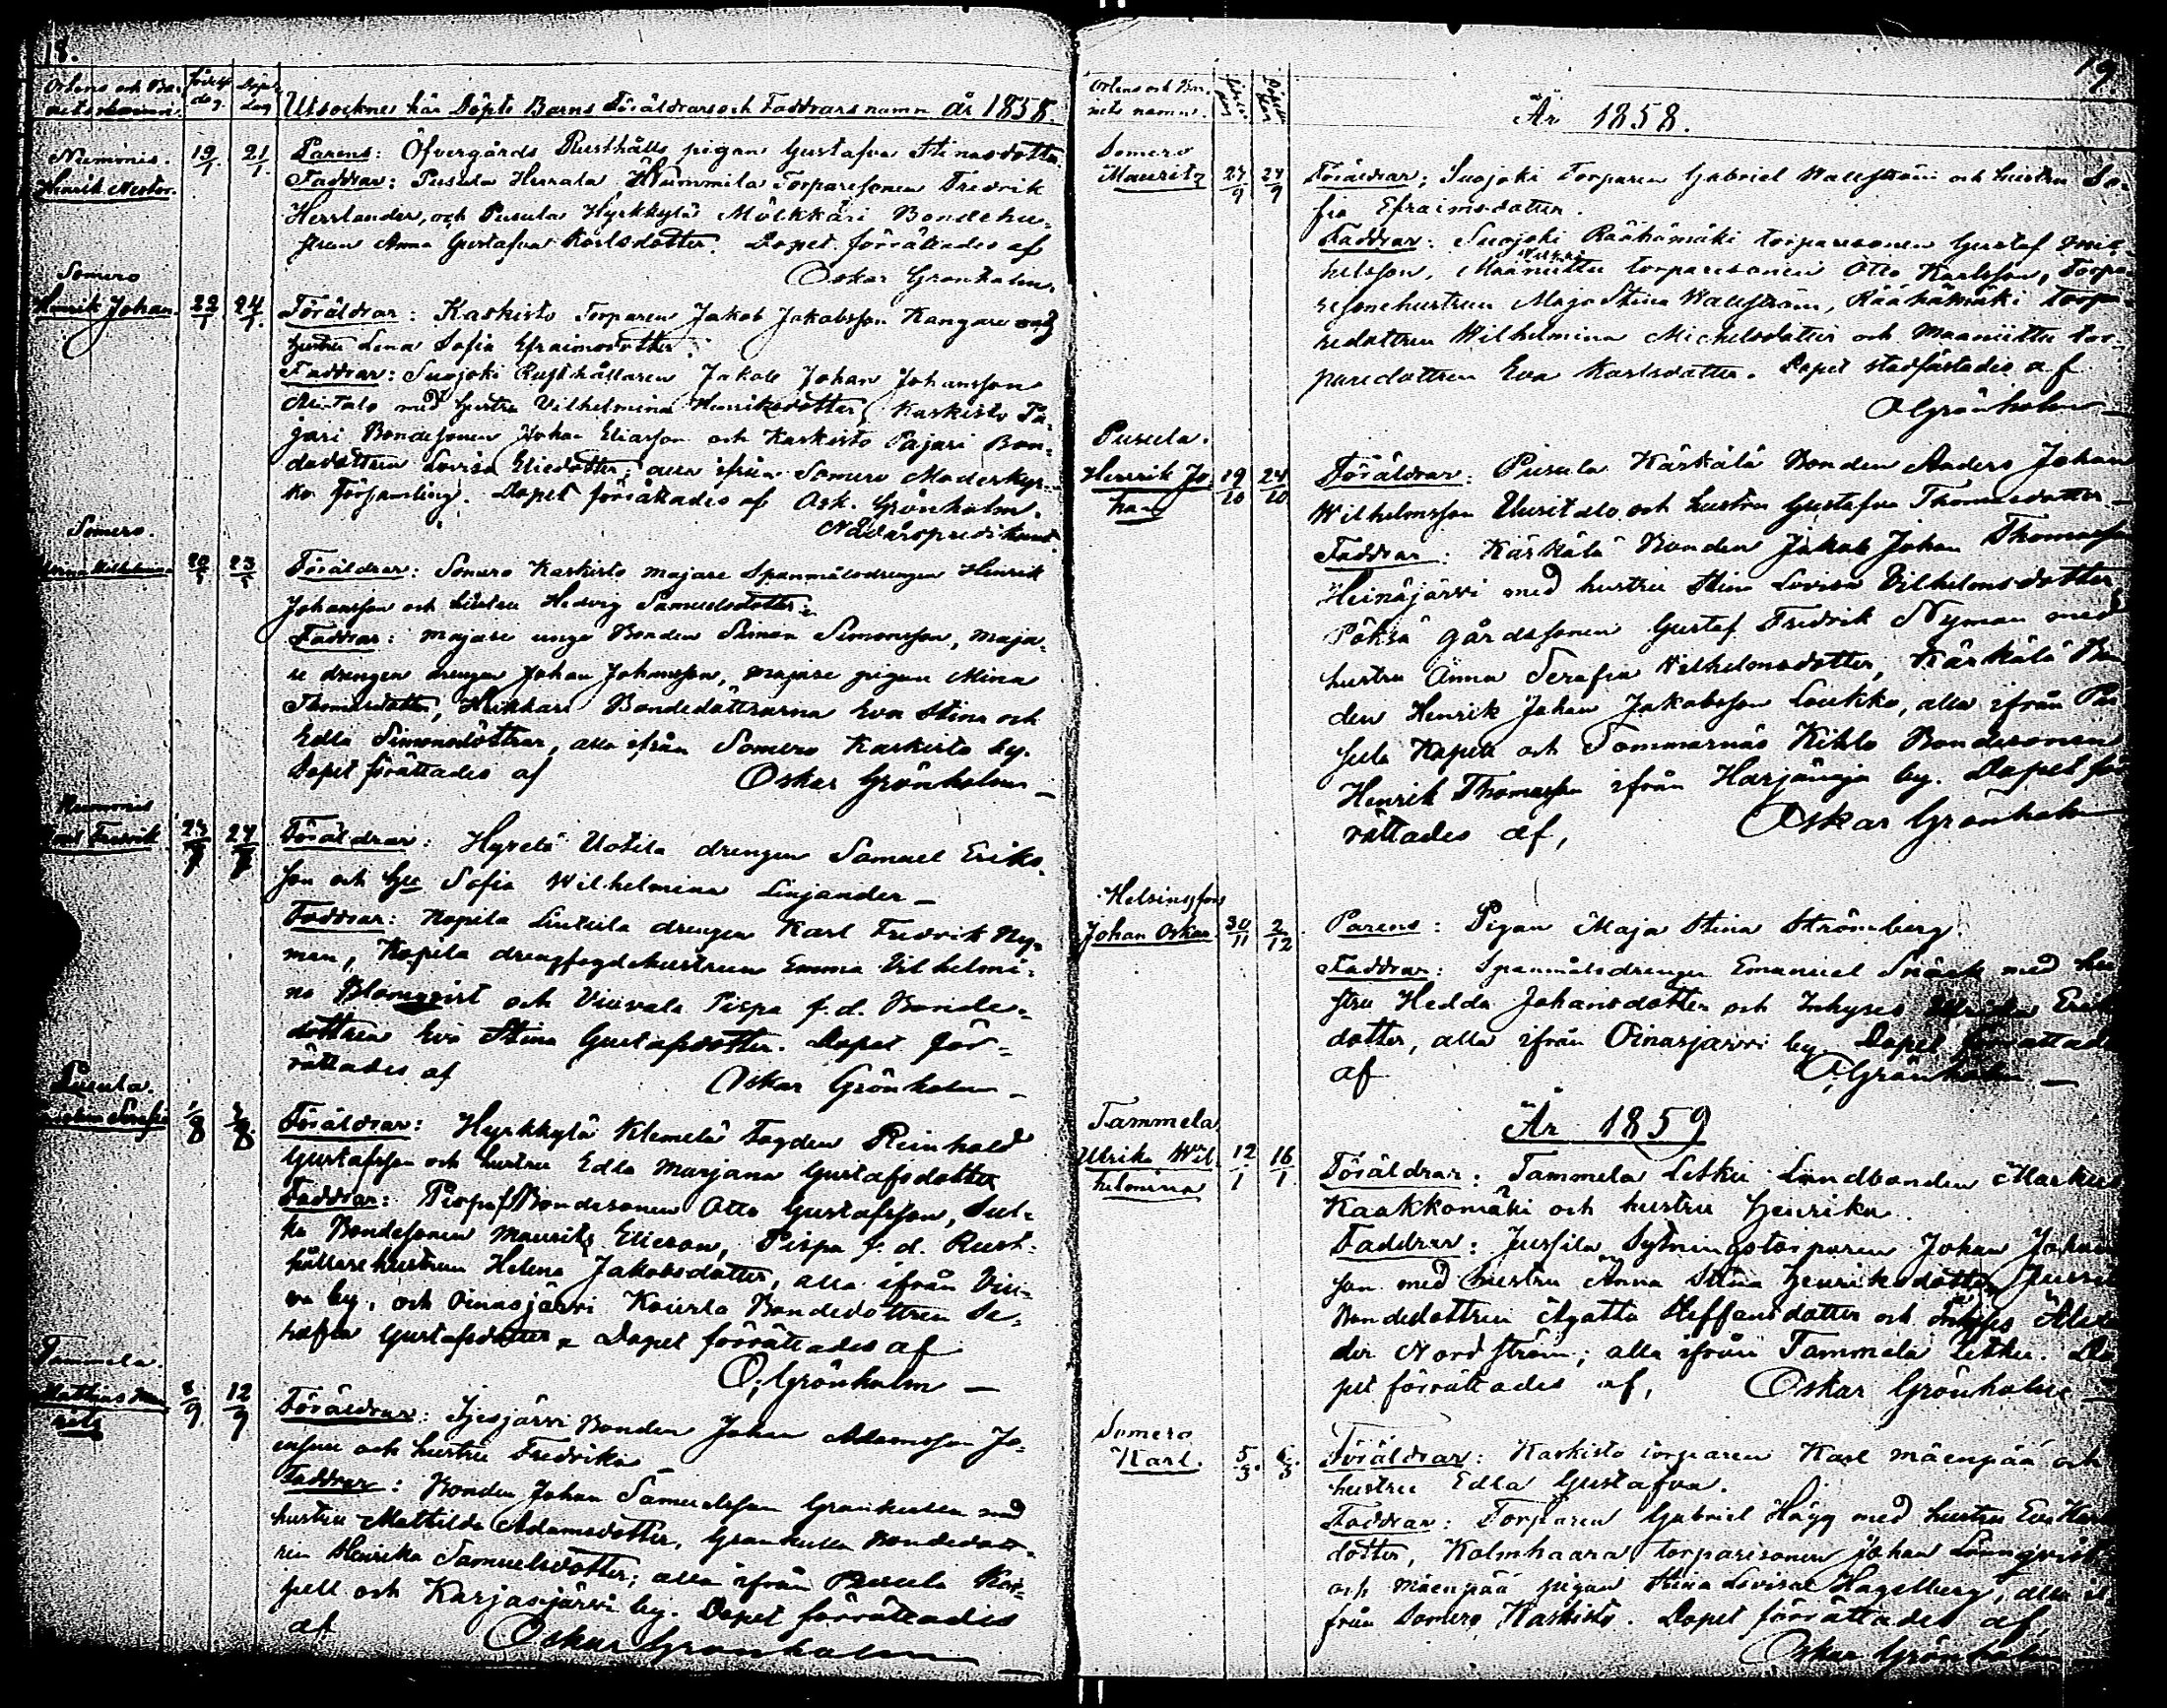 18.
Ortens och Bar-
nets namn.
Födelse
dag.
Döpelse
dag
Utsocknes här Döpte Barns Föräldrars och Faddrars namn År 1858.
Nummis.
Henrik Nestor.
19/1.
21/1.
Parens: Öfvergårds Rusthålls pigan Gustafva Stinasdotter.
Faddrar: Pusula Herrala Nummila Torparesonen Fredrik
Herrlander, och Pusula Hyrkkylä Mölkkäri Bondehu-
strun Anna Gustafva Karlsdotter. Dopet förrättades af
Oskar Grönholm.
Somero
Henrik Johan.
24/1.
Föräldrar: Kaskisto Torparen Jakob Jakobsson Kangare och
hustru Lena Sofia Efraimsdotter.
Faddrar: Suojoki Rusthållaren Jakob Johan Johansson
med hustru Vilhelmina Henriksdotter, Kaskisto Pa-
jari Bondesonen Johan Eliasson och Kaskisto Pajari Bon-
dedottren Lovisa Eliedotter; alla ifrån Somero Moderkyr-
ko församling. Dopet förrättades af Osk. Grönholm.
Nådårspredikant.
Somero.
Vilhelmina
23/1
Föräldrar: Somero Kaskisto Majare Spanmålsdrengen Henrik
Johansson och hustru Hedvig Samuelsdotter.
Faddrar: Majare unge Bonden Simon Simonsson, Maja-
re drengen drengen Johan Johansson, Majare pigan Mina
Thomasdotter, Hukkari Bondedöttrarna Eva Stina och
Edla Simonsdöttrar, alla ifrån Somero Kaskisto by.
Dopet förättades af Oskar Grönholm —
Nummis
Fredrik
Föräldrar: Hyrelä Uotila drengen Samuel Eriks-
son och Hu Sofia Wilhelmina Linjander —
Faddrar: Kopila Lintula drengen Karl Fredrik Ny-
man, Kopila drengfogdehustrun Emma Vilhelmi-
na Blomqvist och Viuvala Pispa f.d. Bonde-
dottren Eva Stina Gustafsdotter. Dopet för-
rättades af Oskar Grönholm —
Pusula.
Serafia
1/8
Föräldrar: Hyrkkylä Klemelä Fogden Reinhold
Gustafsson och hustru Edla Marjana Gustafsdotter
Faddrar: Pispa Bondesonen Otto Gustafsson, Sul-
ka Bondesonen Maurits Elieson, Pispa f. d. Rust-
hållarehustrun Helena Jakobsdotter, alla ifrån Viu-
va by, och Oinasjärvi Bondedottren Se-
rafia Gustafsdotter. Dopet förrättades af
O; Grönholm —
Tammela.
Mathias Mau-
rits
8/9.
12/9
Föräldrar: Bonden Johan Adamsson Jo-
ensuu och hustru Fredrika
Faddrar: Bonden Johan Samuelsson Grankulla med
hustru Mathilda Adamsdotter, Grankulla Bondedott-
ren Henrika Samuelsdotter; alla ifrån Pusula Ka-
pell och Karjasjärvi by. Dopet förrättades
af Oskar Grönholm
19.
Ortens och Bar-
nets namn.
År 1858.
Somero
Mauritz
24/9
27/9
Föräldrar; Suojoki Torparen Gabriel Wallström och hustru So-
fia Efraimsdotter.
Faddrar: Suojoki Räähämäki torparesonen Gustaf Mic-
helsson, Maaniittu torparesonen Otto Karlsson, Torpa-
resonehustrun Maja Stina Wallström, Räähämäki torpa-
redottren Wilhelmina Michelsdotter och Maaniittu tor-
paredottren Eva Karlsdotter. Dopet stadfästades af
O Grönholm —
Pusula.
Henrik Jo-
han
19/10
24/10
Föräldrar: Pusula Kärkälä Bonden Anders Johan
Wilhelmsson Uusitalo och hustru Gustafva Thomasdotter —
Faddrar: Kärkälä Bonden Jakob Johan Thomasson
Heinäjärvi med hustru Stina Lovisa Vilhelmsdotter
Pöksä gårdssonen Gustaf Fredrik Nyman med
hustru Anna Serafia Wilhelmsdotter, Kärkälä Bon-
den Henrik Johan Jakobsson Loukko, alla ifrån Pu-
sula Kapell och Sommarnäs Kihlo Bondesonen
Henrik Thomasson ifrån Harjänoja by. Dopet för-
rättades af, Oskar Grönholm
Helsingfors
Johan Oskar
30/11
2/12
Parens: Pigan Maja Stina Strömberg
Faddrar: Spanmålsdrengen Emanuel Snäck med hu-
stru Hedda Johansdotter och Inhyses Ulrika Eriks-
dotter, alla ifrån Oinasjärvi by. Dopet förrättades
af O; Grönholm —
År 1859
Tammela
Ulrika Wil-
helmina
12/1
16/1
Föräldrar: Tammela Letku Landbonden Markus
Kaakkomäki och hustru Henrika.
Faddrar: Jussila Sytningstorparen Johan Johans-
son med hustru Anna Stina Henriksdotter, Jussila
Bondedottren Agatha Steffansdotter och Inhyses Alexan-
der Nordström; alla ifrån Tammela Letku. Do-
pet förrättades af, Oskar Grönholm —
Somero
Karl.
5/3.
6/3.
Föräldrar: Kaskisto torparen Karl Mäenpää och
hustru Edla Gustafva.
Faddrar: Torparen Gabriel Hägg med hustru Eva Karls-
dotter, Kolmhaara torparesonen Johan Lönnqvist
och Mäenpää pigan Stina Lovisa Hagelberg, alla i-
från Somero Kaskisto. Dopet förrättades af,
Oskar Grönholm —